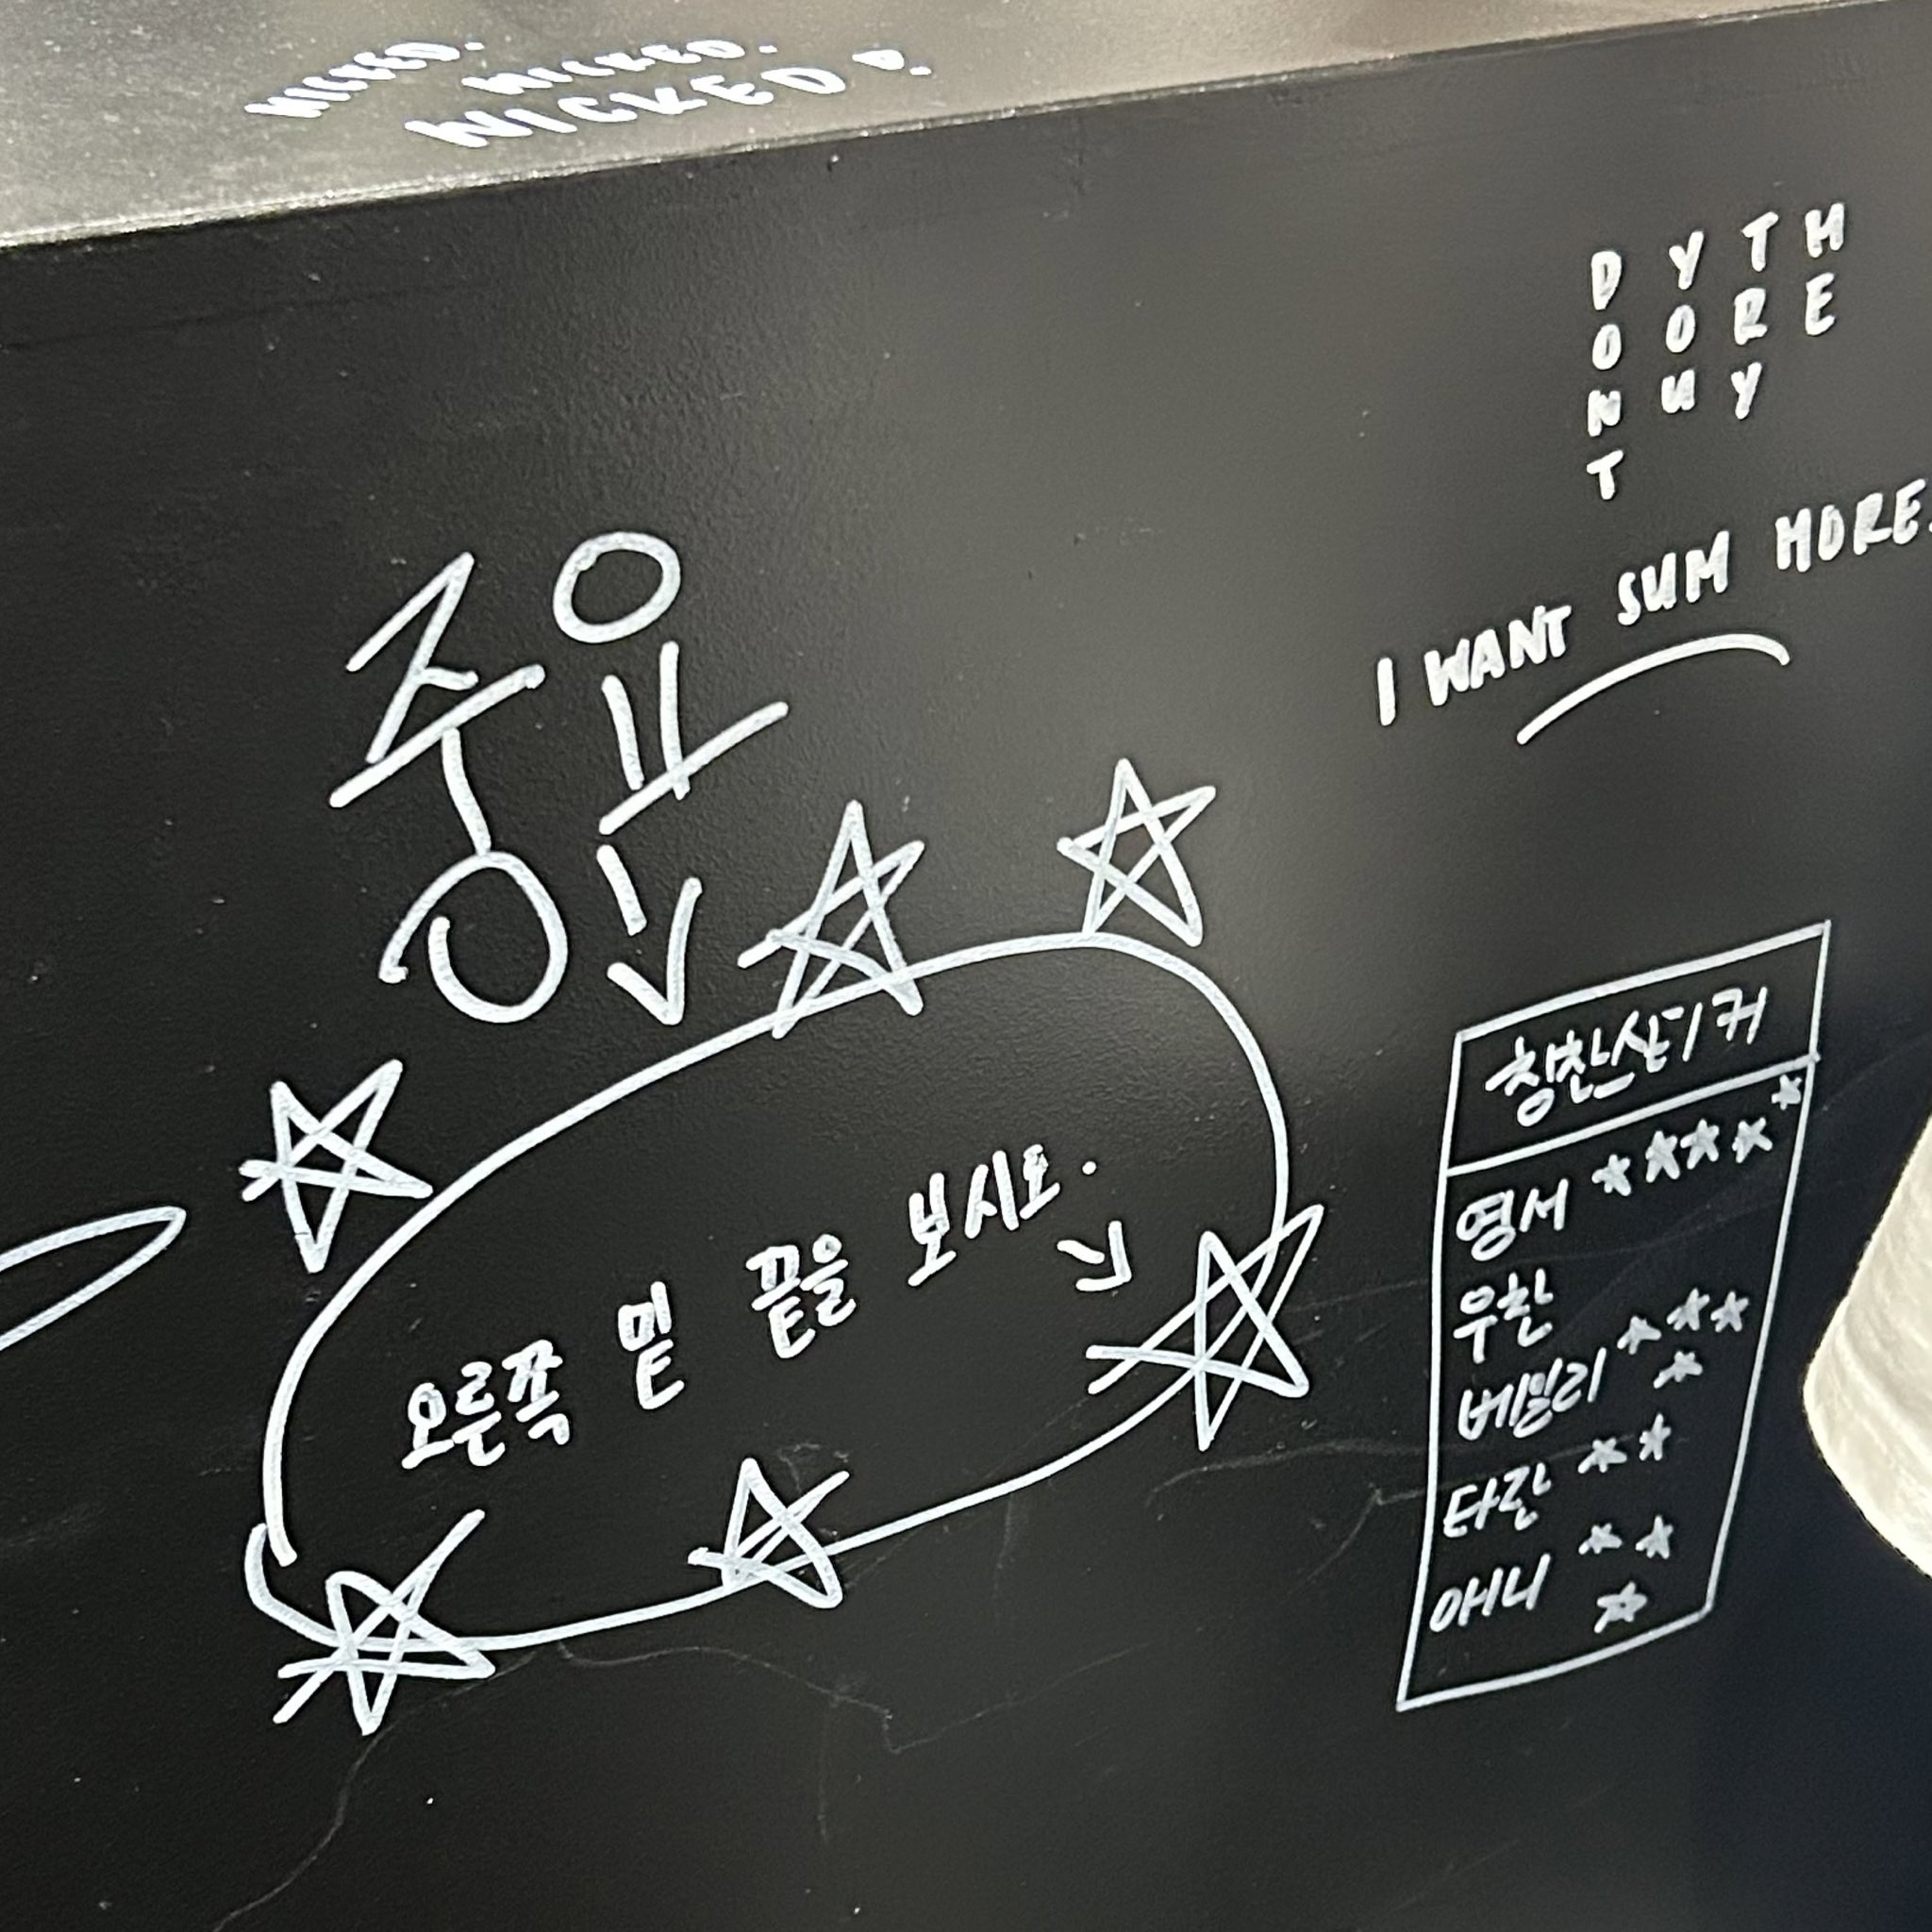 WICKED.
WICKED.
WICKED.
D Y T M
O O R E
N U Y
T
I WANT SUM MORE.
중요!
오른쪽 밑 끝을 보시오.
칭찬스티커
영서 ★★★★★
우찬
베일리 ★★★★
타잔 ★★
애니 ★★★